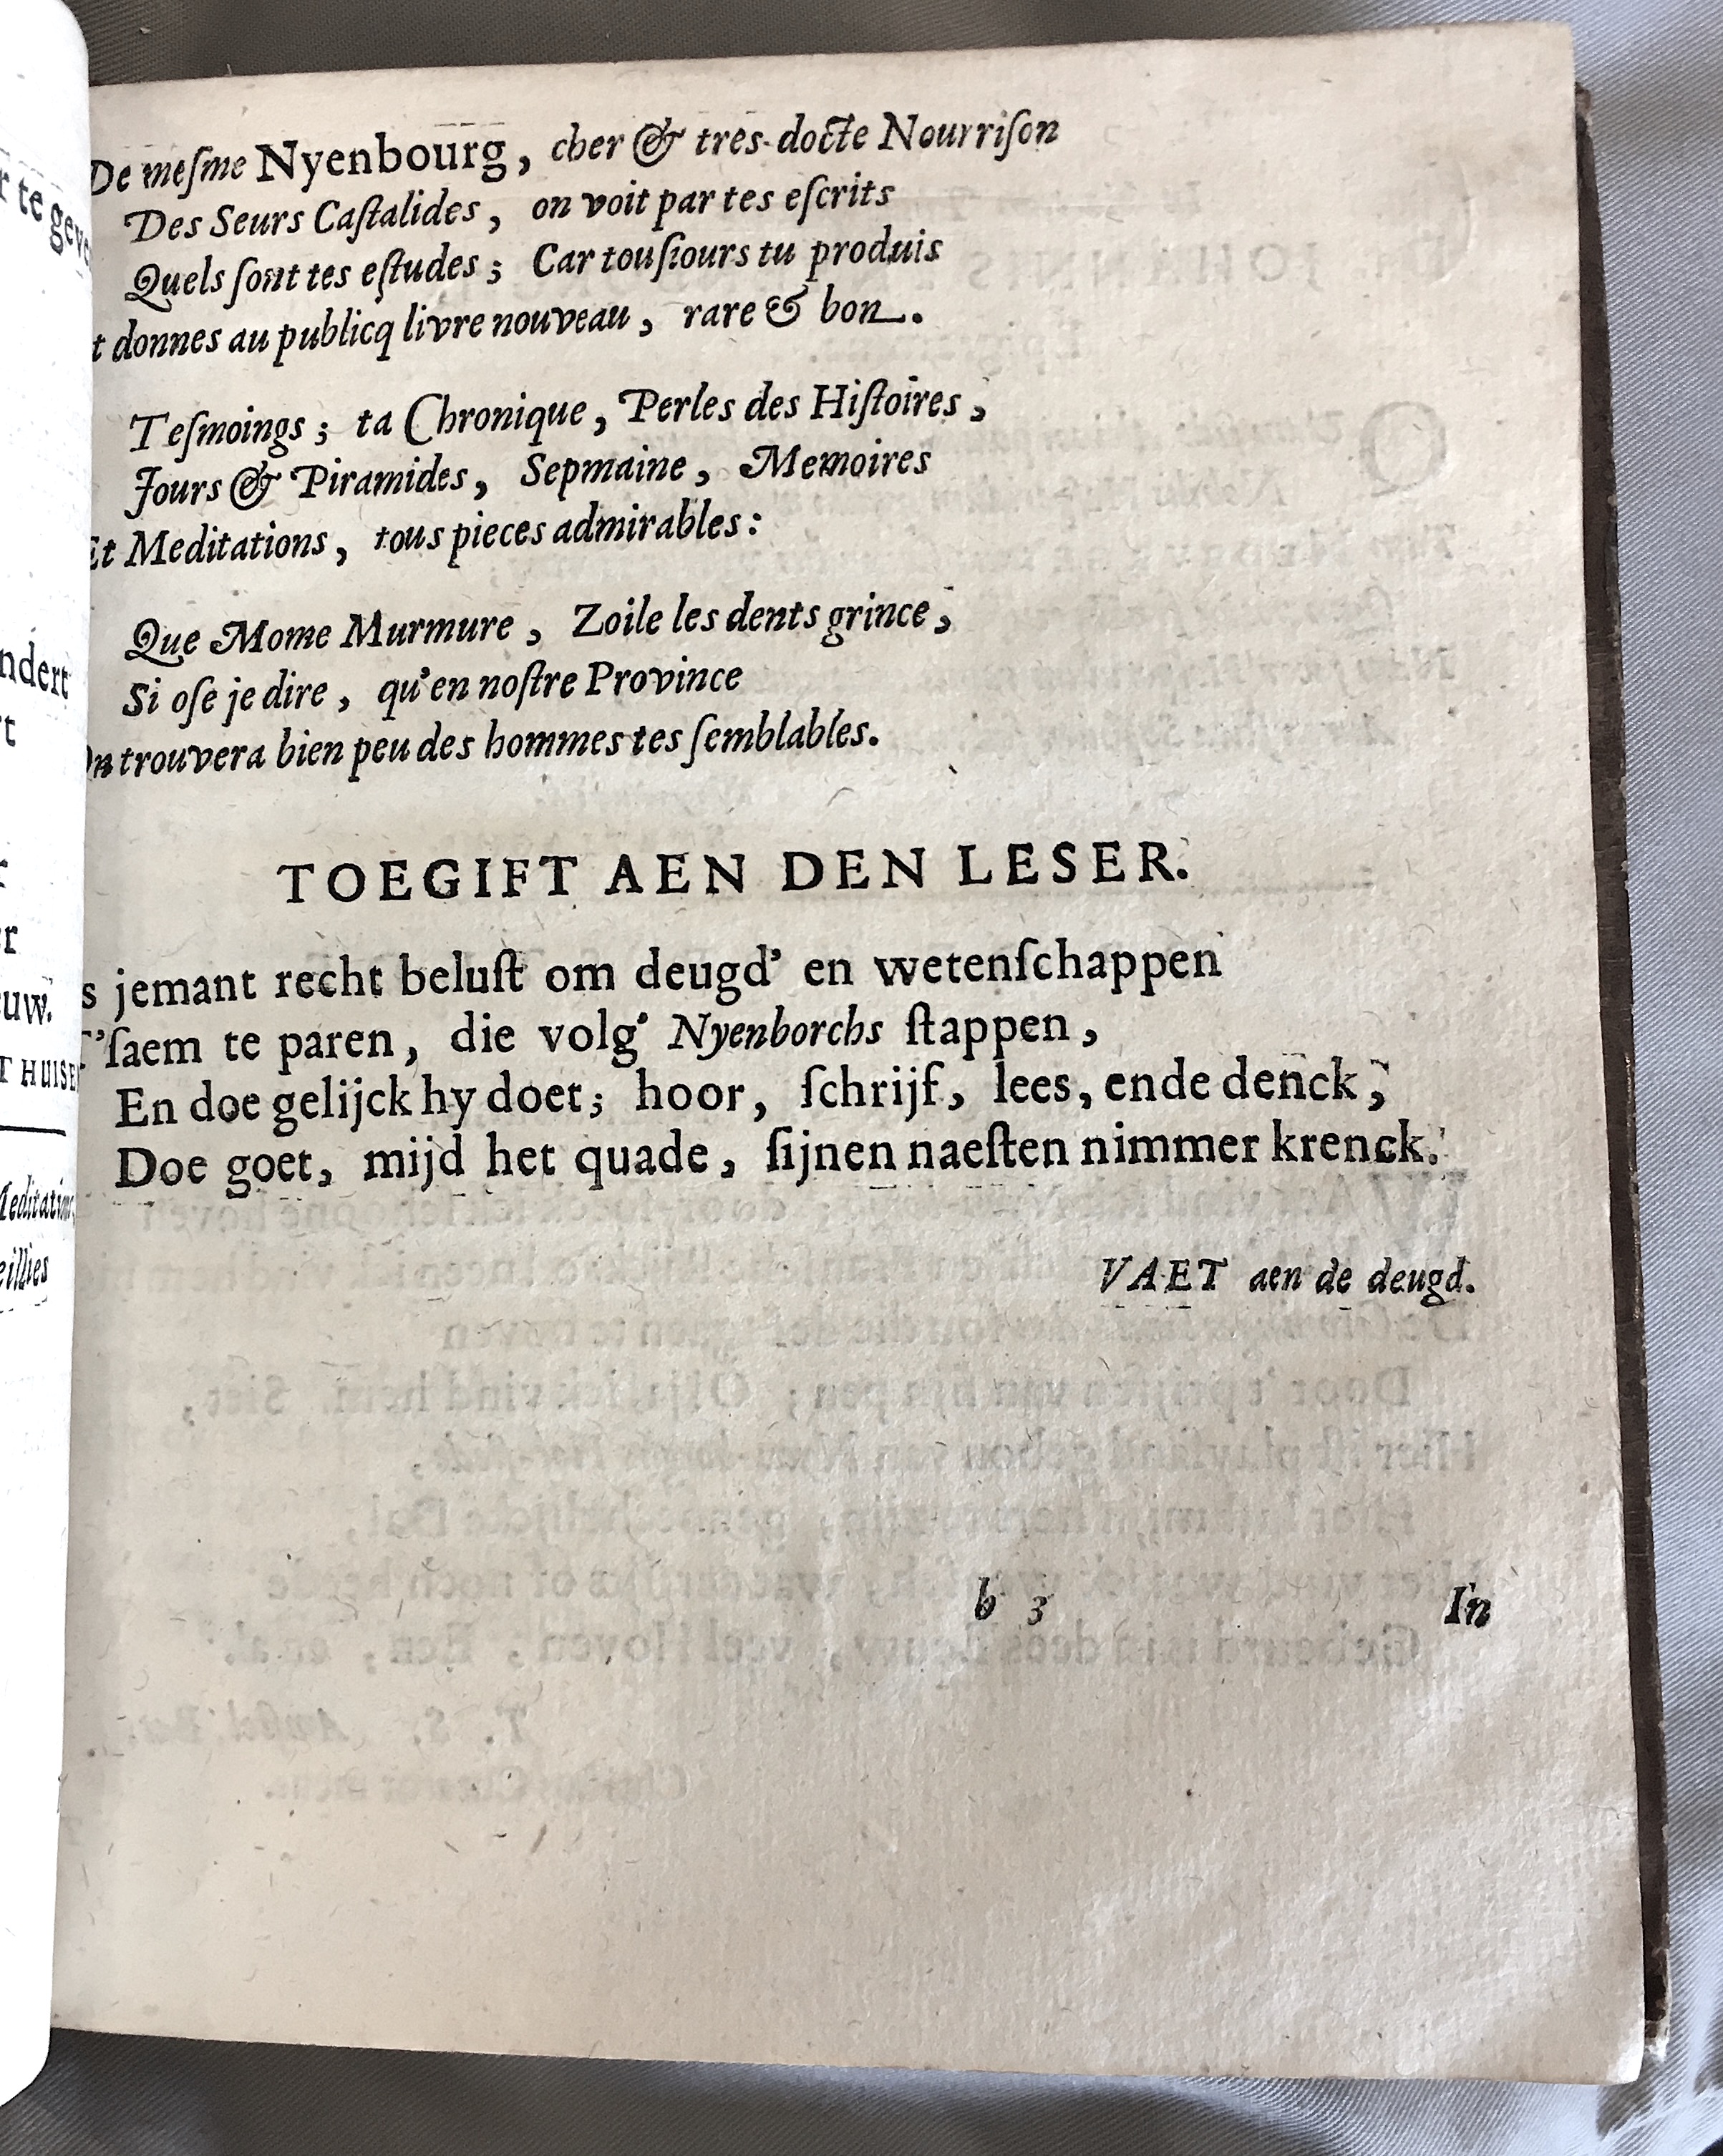 De meſme Nyenbourg, cher & tres-docte Nourriſon
Des Seurs Caſtalides, on voit par tes eſcrits
Quels ſont tes eſtudes; Car touſiours tu produis
t donnes au publicq livre nouveau, rare & bon.
Teſmoings; ta Chronique, Perles des Hiſtoires,
Jours & Piramides, Sepmaine, Memoires
Et Meditations, tous pieces admirables:
Que Mome Murmure, Zoile les dents grince,
Si oſe je dire, qu'en noſtre Province
On trouvera bien peu des hommes tes ſemblables.
TOEGIFT AEN DEN LESER.
s jemant recht beluſt om deugd' en wetenſchappen
T'ſaem te paren, die volg' Nyenborchs ſtappen,
En doe gelijck hy doet; hoor, ſchrijf, lees, ende denck,
Doe goet, mijd het quade, ſijnen naeſten nimmer krenck.
VAET aen de deugd.
b 3 In